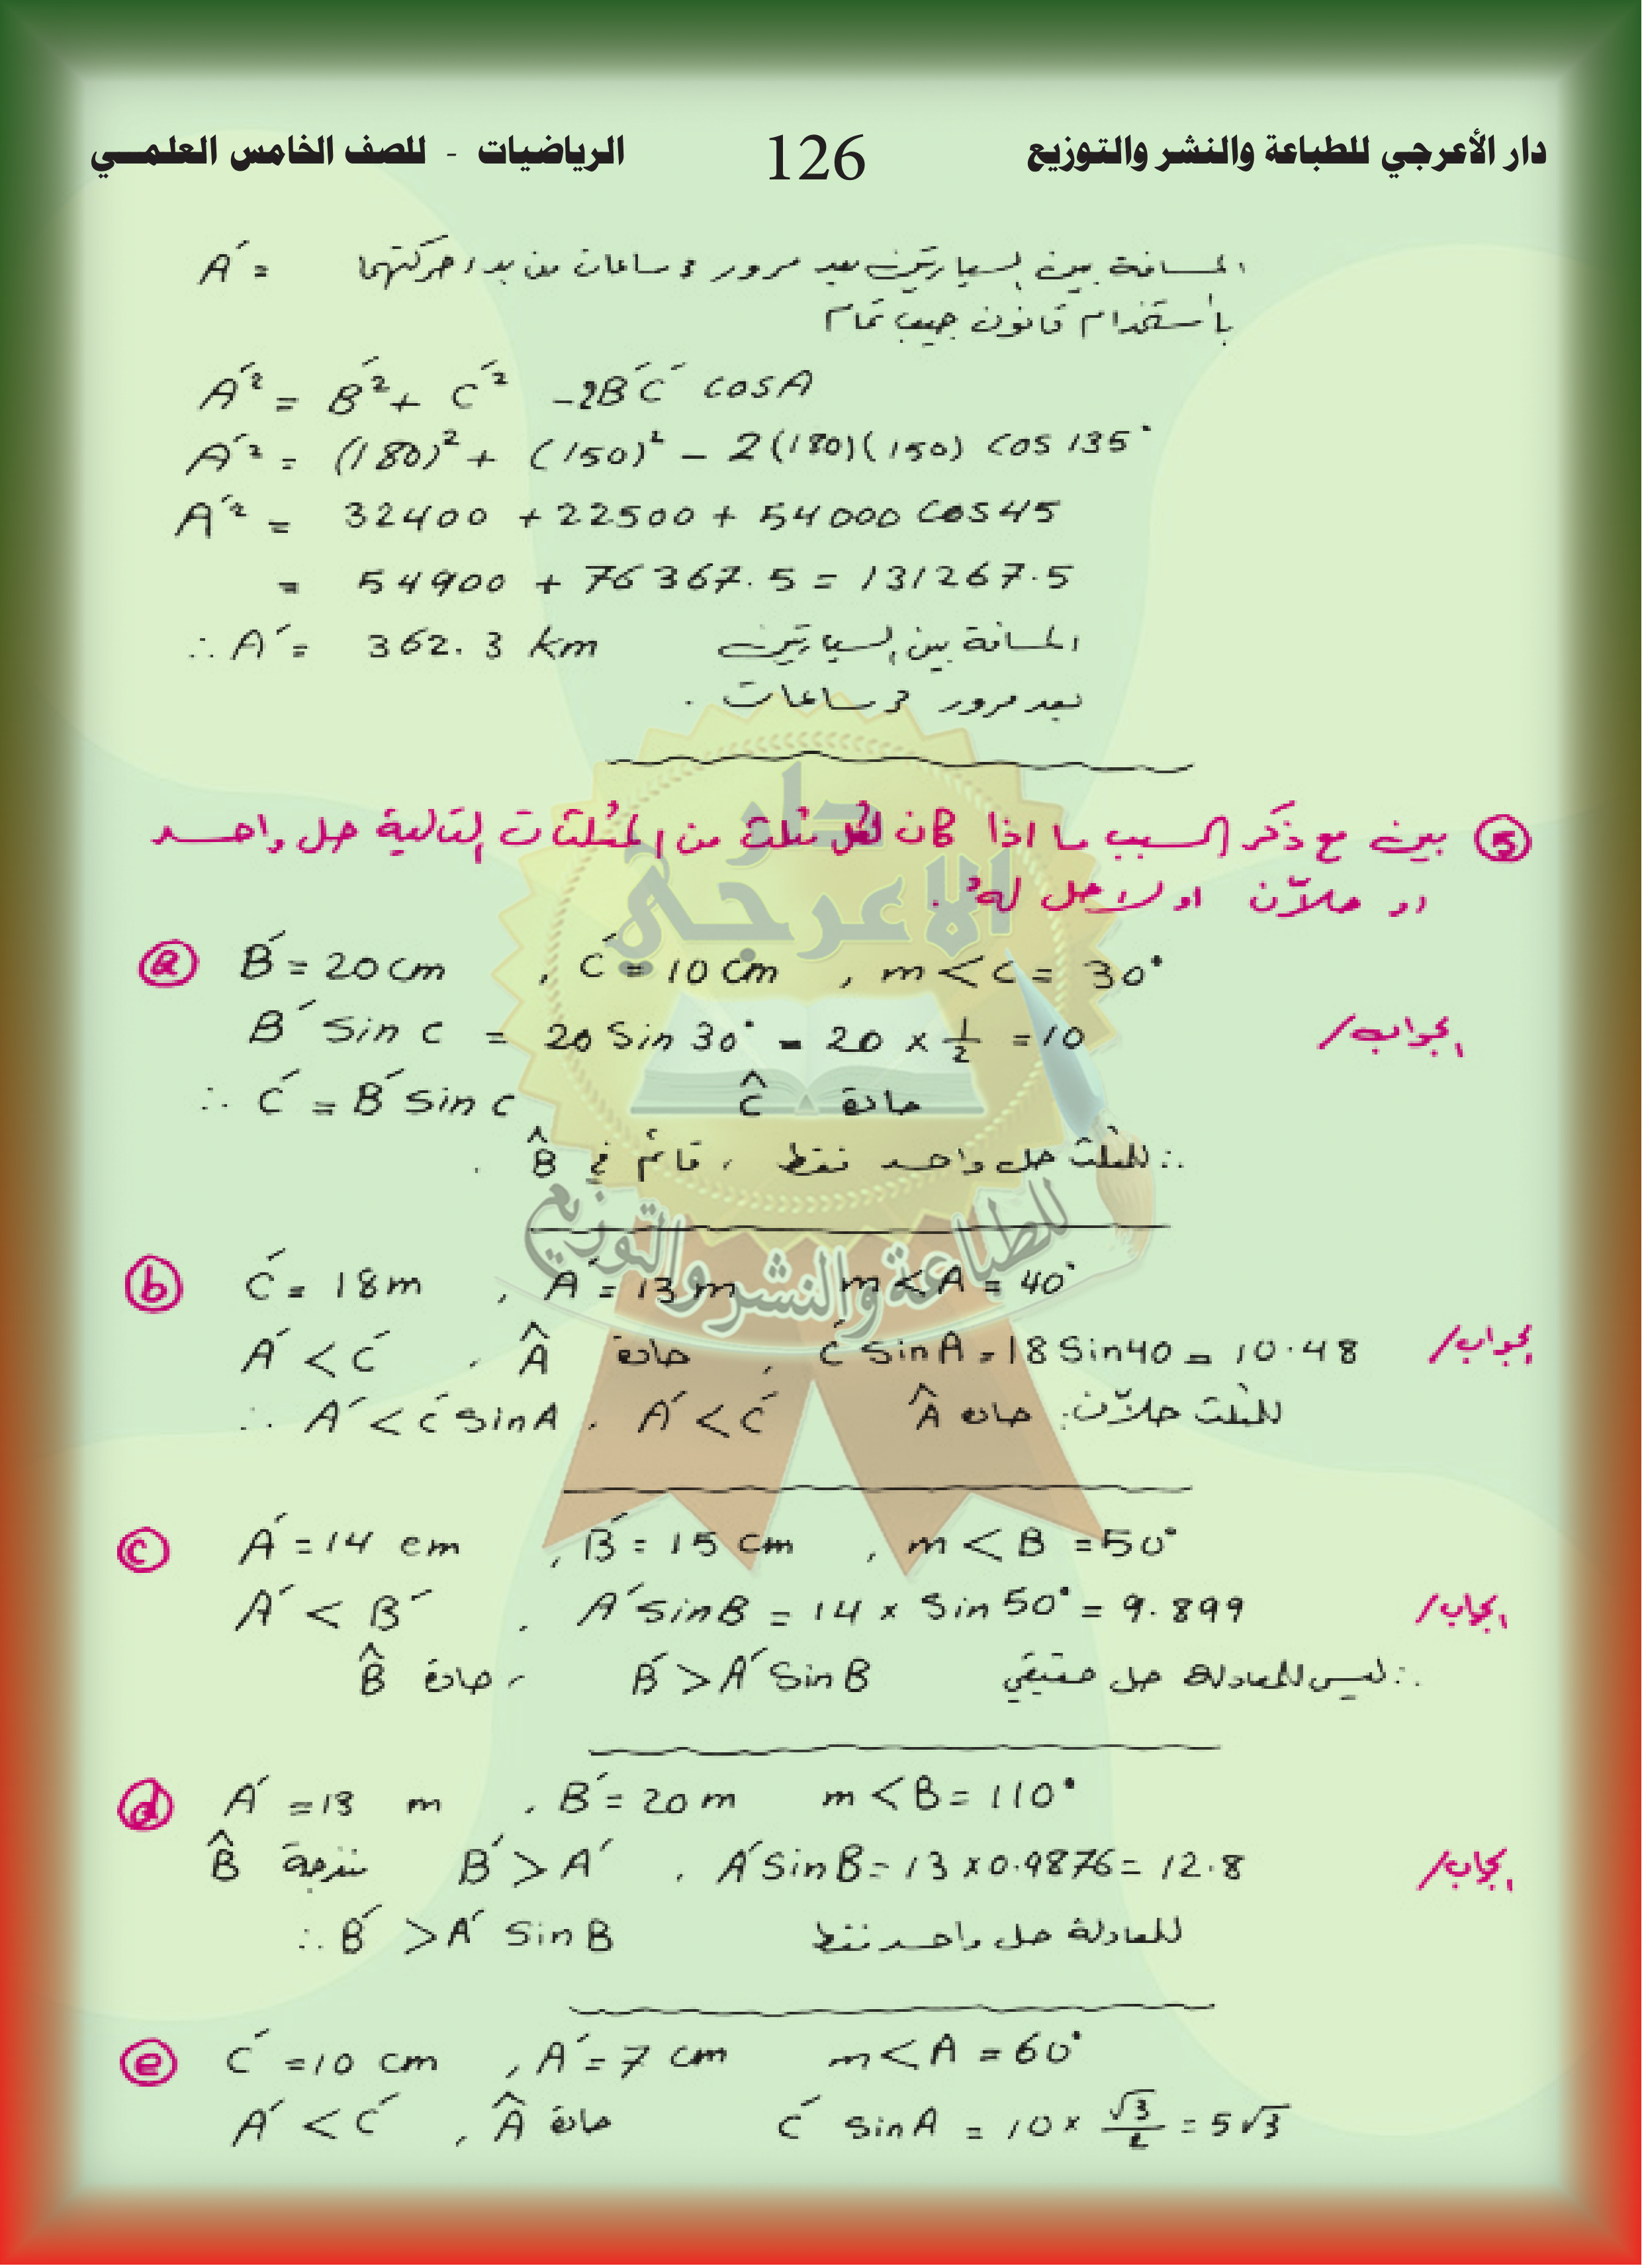 دار الأعرجي للطباعة والنشر والتوزيع 126 الرياضيات - للصف الخامس العلمي
المسافة بين السيارتين بعد مرور 3 ساعات من بدء حركتهما = A´
باستخدام قانون جيب تمام
A´² = B´² + C´² -2B´C´ cosA
A´² = (180)² + (150)² - 2(180)(150) cos 135°
A´² = 32400 + 22500 + 54000 cos45
= 54900 + 76367.5 = 131267.5
∴ A´ = 362.3 km المسافة بين السيارتين
بعد مرور 3 ساعات .
⑤ بين مع ذكر السبب ما اذا كان لكل مثلث من المثلثات التالية حل واحد
او حلاّن او لا حل لهُ .
ⓐ B´ = 20 cm , C´ = 10 cm , m < C = 30°
الجواب/ B´ sin C = 20 sin 30° = 20 × 1/2 = 10
∴ C´ = B´ sin C Ĉ حادة
∴ للمثلث حل واحد فقط ، قائم في B̂ .
ⓑ C´ = 18 m , A´ = 13 m m < A = 40°
الجواب/ A´ < C´ , Â حادة , C´ sin A = 18 sin 40 = 10.48
∴ A´ < C´ sin A , A´ < C´ Â حادة : للمثلث حلاّن
ⓒ A´ = 14 cm , B´ = 15 cm , m < B = 50°
الجواب/ A´ < B´ , A´ sin B = 14 × sin 50° = 9.899
∴ ليس للمعادلة حل حقيقي B´ > A´ sin B ، حادة B̂
ⓓ A´ = 13 m , B´ = 20 m m < B = 110°
الجواب/ B̂ منفرجة B´ > A´ , A´ sin B = 13 × 0.9876 = 12.8
∴ B´ > A´ sin B للمعادلة حل واحد فقط
ⓔ C´ = 10 cm , A´ = 7 cm m < A = 60°
A´ < C´ , Â حادة C´ sin A = 10 × √3/2 = 5√3
دار
الاعرجي
للطباعة والنشر والتوزيع